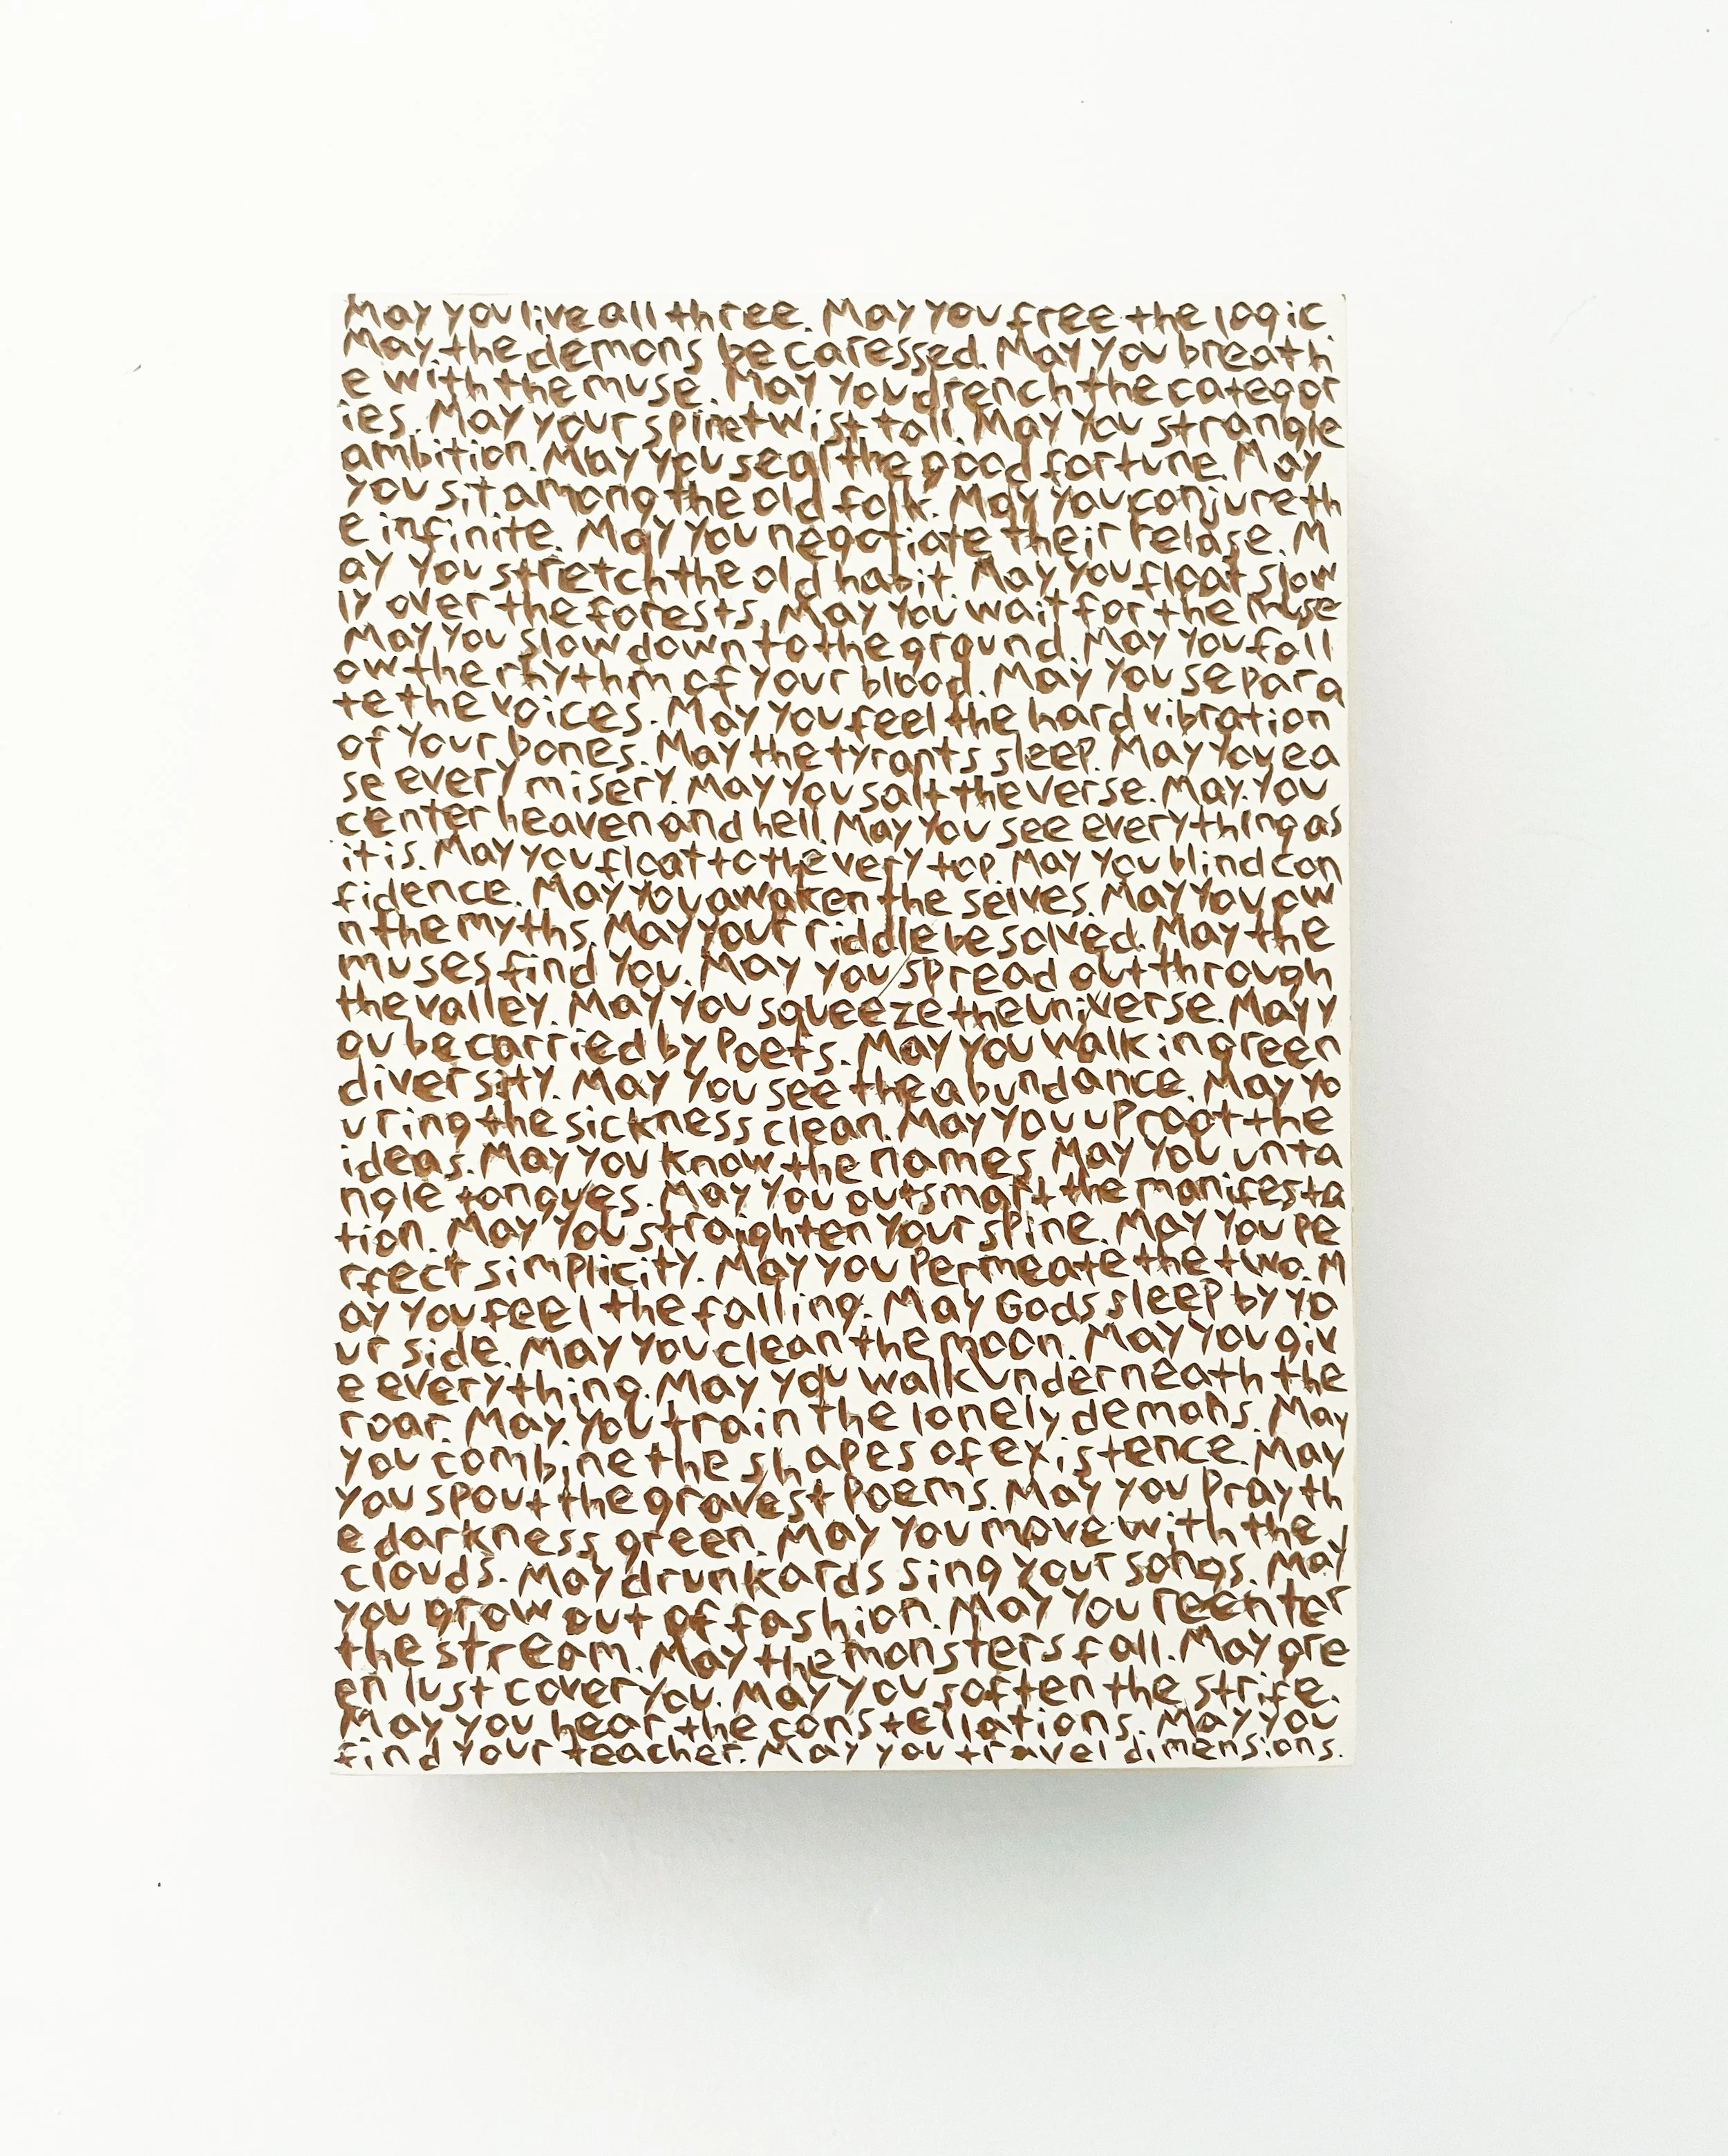 May you live all three. May you free the logic.
May the demons be caressed. May you breath
e with the muse. May you drench the categor
ies. May your spine twist tall. May you strangle
ambition. May you seal the good fortune. May
you sit among the old folk. May you conjure th
e infinite. May you negotiate their relase. M
ay you stretch the old habit. May you float slow
ly over the forests. May you wait for the muse
May you slow down to the ground. May you foll
ow the rhythm of your blood. May you separa
te the voices. May you feel the hard vibration
of your bones. May the tyrants sleep. May you ea
se every misery. May you salt the verse. May you
center heaven and hell. May you see everything as
it is. May you float to the very top. May you blind con
fidence. May you awaken the selves. May you ow
n the myths. May your riddle be solved. May the
muses find you. May you spread out through
the valley. May you squeeze the universe. May y
ou be carried by Poets. May you walk in green
diversity. May you see the abundance. May yo
u ring the sickness clean. May you uproot the
ideas. May you know the names. May you unta
ngle tongues. May you outsmart the manifesta
tion. May you straighten your spine. May you pe
rfect simplicity. May you permeate the two. M
ay you feel the falling. May Gods sleep by yo
ur side. May you clean the moon. May you giv
e everything. May you walk underneath the
roar. May you train the lonely demons. May
you combine the shapes of existence. May
you spout the gravest poems. May you pray th
e darkness green. May you move with the
clouds. May drunkards sing your songs. May
you grow out of fashion. May you reenter
the stream. May the monsters fall. May gre
en lust cover you. May you soften the strife.
May you hear the constellations. May you
find your teacher. May you travel dimensions.